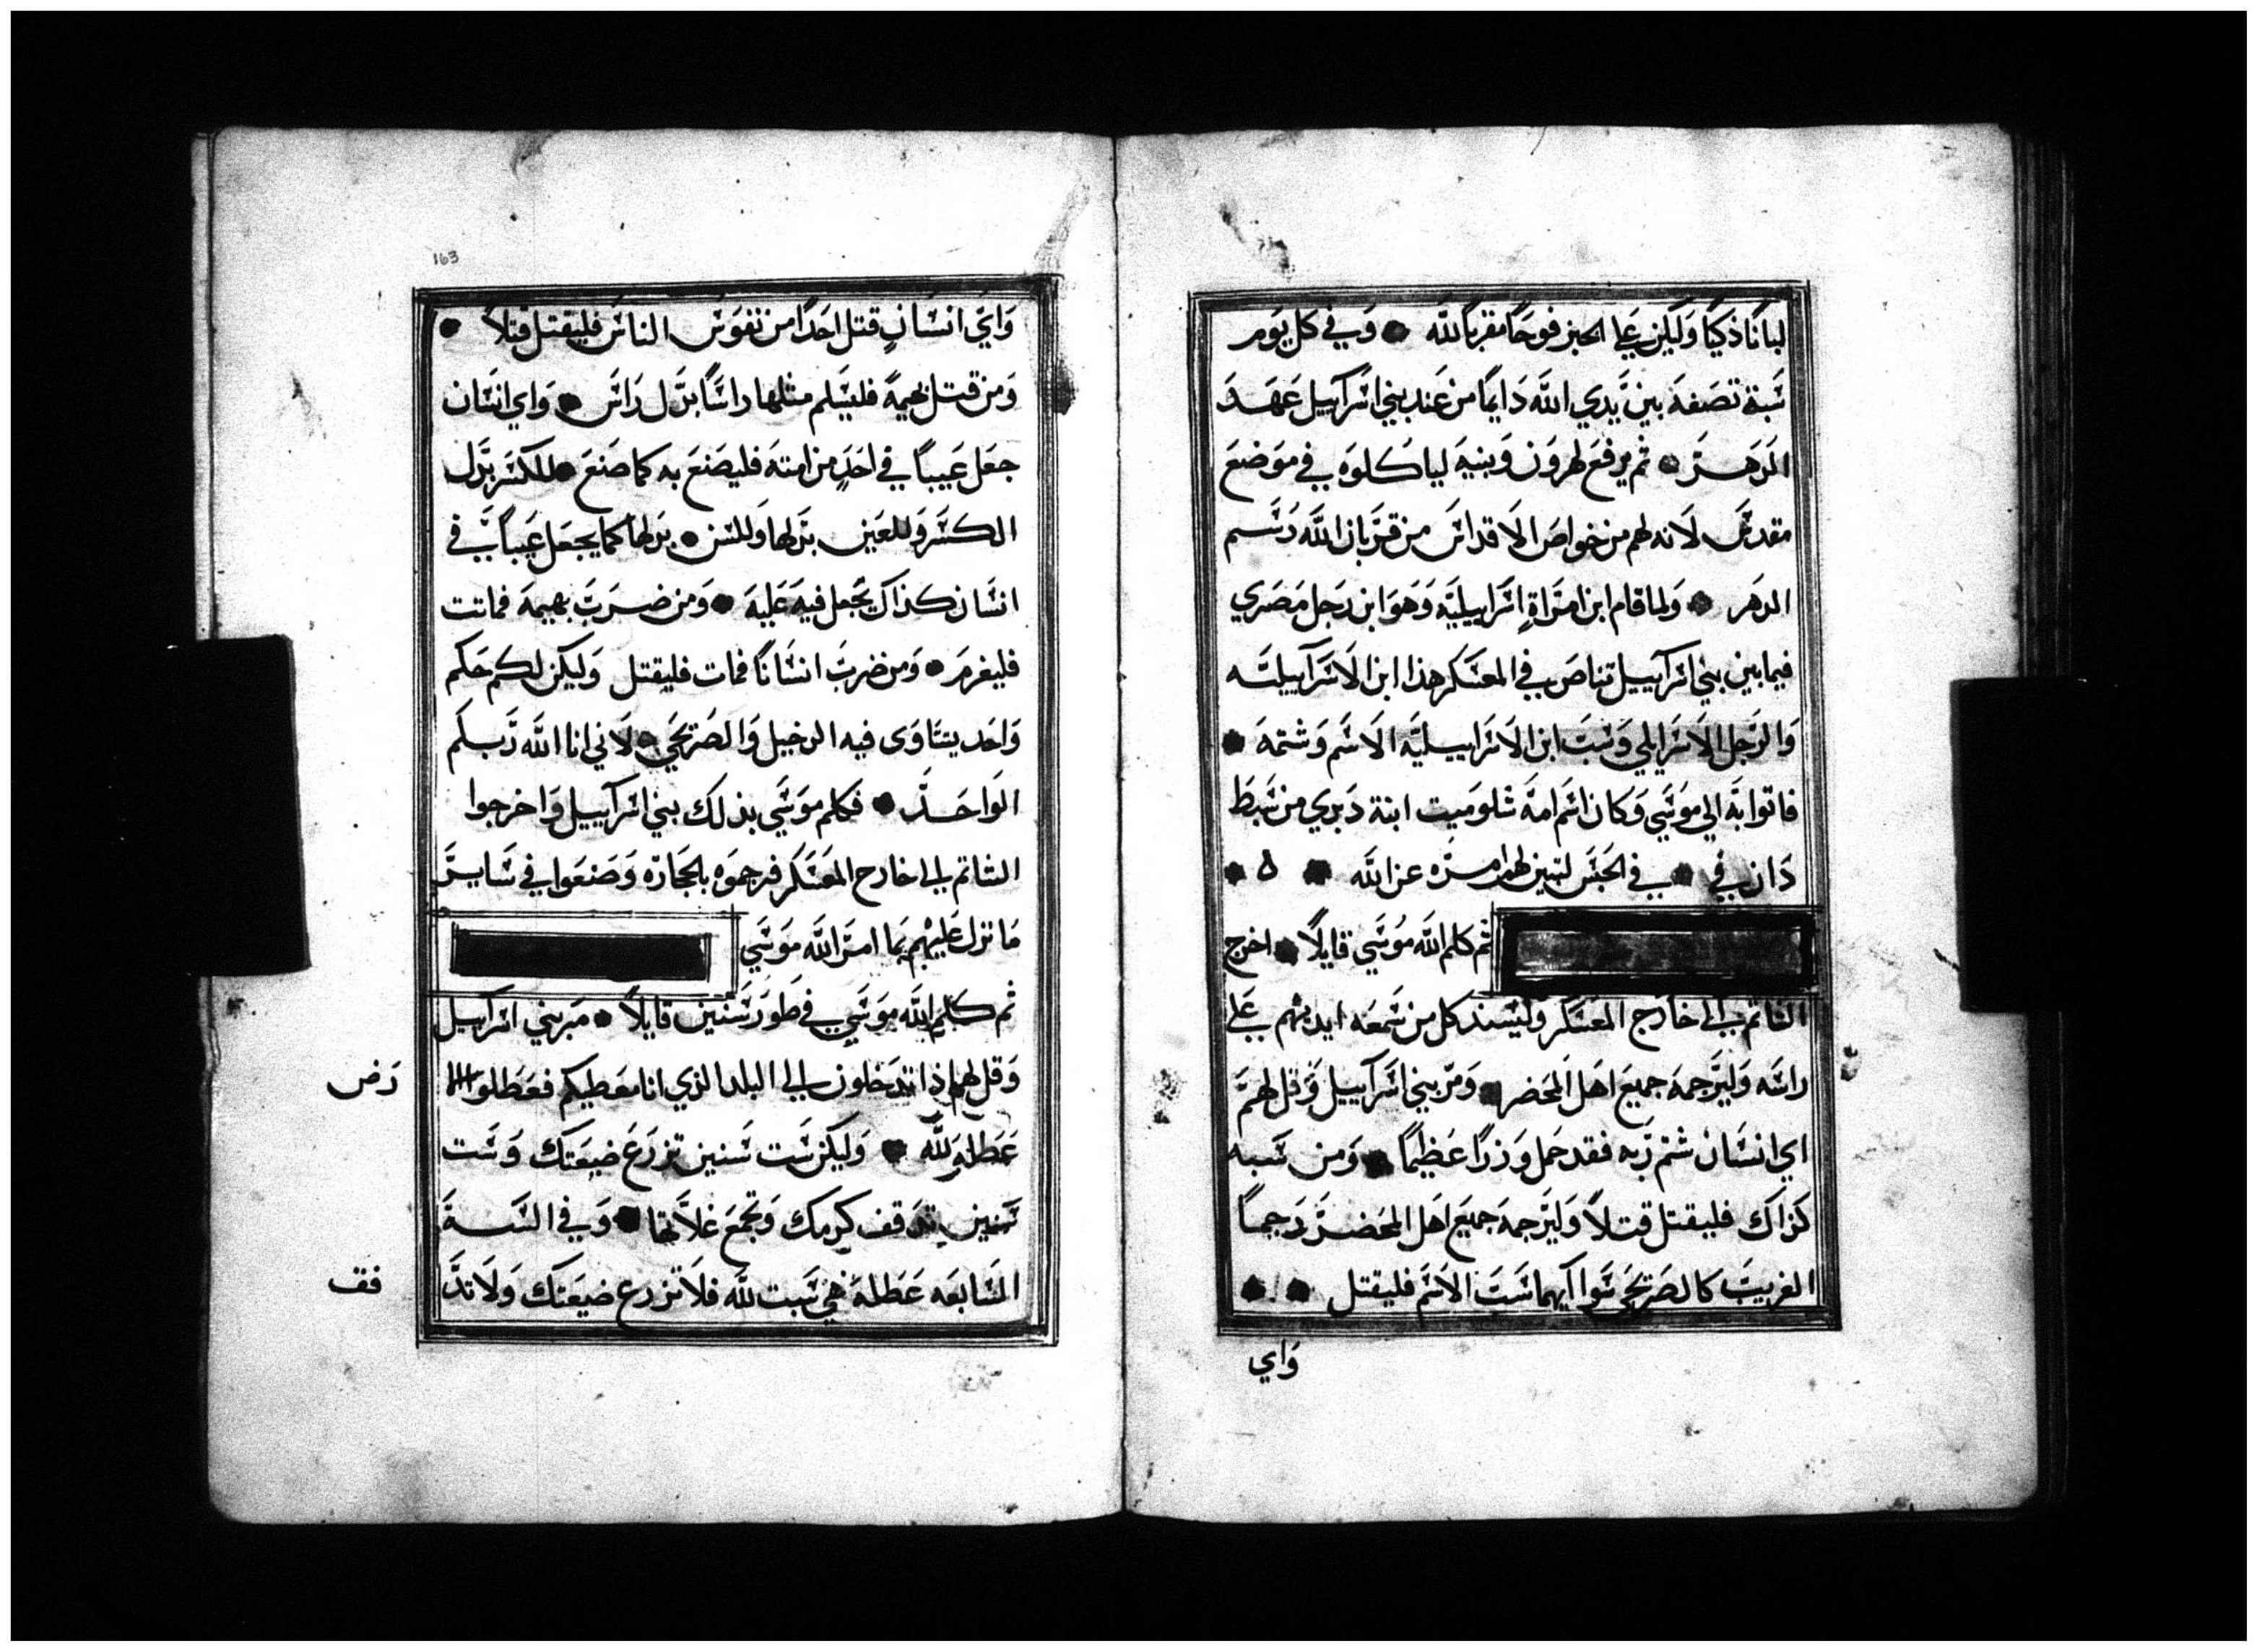 لبانًا ذكيًا وَليكن علي الخبز فوحًا مقربًا للّه • وَفي كل يَوم
سَبة تصَفهَ بين يَدي اللّه دَايمًا من عَند بني اسَرآييل عَهد
الدَهرَ • ثم يرفعَ لهرَون وَبنيهَ لياكلوَه في موَضعَ
مقدسَ لاَنه لهم من خوَاصَ الاَقداسَ من قرَبان اللّه رَسم
الدهَر • وَلما قام ابن امرَاةٍ اسَرَاييليَه وَهوَ ابن رَجل مَصَري
فيما بين بني اسَرآييل تناصَب في المعسَكر هذا ابن الاَسَرآييليَه
وَالرَجل الاَسَرايلي وَسَبَ ابن الاَسَراييليَه الاَسَم وَشتمهَ •
فاتوا بهَ الي موَسَي وَكان اسَم امهَ شلومَيت ابنة دَبري من سَبط
دَان في • في الحَبسَ لتبين لهم امرَه عن اللّه • ه •
ثم كلم اللّه موُسَي قايلاً • اخرج
الشاتم الي خارَج المعَسَكر وَليسَند كل من سَمعَه ايديهم عَلي
راسَه وَليرَجمهَ جميعَ اهَل المحَضر • وَمرَ بني اسَرآييل وَقل لهمَ
اي انسَان شتم رَبه فقد حَمل وَزرًا عَظيمًا • وَمن سَبه
كَزاك فليقتل قتلاً وَليرَجمهَ جميَع اهَل المحَضرَ رَجمًا
الغريبَ كالصَريحَي سَوا ايهما سَبَ الاَسَم فليقتل • •
وَاي
163
وَايَ انسَانٍ قتل احَدًا من نفوَسَ الناسَ فليقتل قتلاً •
وَمن قتل بهيمةً فليسَلم مثلها راسًَا بدَل رَاسَ • وَاي انسَان
جعَل عَيبًا في احَدٍ من امتهَ فليصَنعَ به كما صَنعَ • للكسَر بدَل
الكسَر وَللعَين بدَلها وَللسَن • بدَلها كما يجعَل عَيبًا في
انسَان كذاك يجَعل فيهَ عَليهَ • وَمن ضرَبَ بهيمهَ فماتت
فليغرمَ • وَمن ضربَ انسَانًا فمات فليقتل وَليكن لكم حَكم
وَاحَد يتسَاوَى فيه الدخيل وَالصَريحَي • لاَني انا اللّه رَبكم
الوَاحَد • فكلم موَسَي بذلك بني اسَرآييل وَاخرجوا
الشاتم الي خارج المعَسَكر فرجموَه بالحَجارَه وَصَنعَوا في سَايرَ
مَا نزل عَليهْم بمَا امرَ اللّه موَسَي
ثم كلم اللّه موَسَي في طَورَ سَنين قايلاً • مَر بني اسَرآييل
وَقل لهم اذا تدَخلون الي البلد الزي انا معَطيكم فعَطلوا الا
رَض
عَطلهَ للّه • وَليكن سَت سَنين تزرَعَ ضيعَتك وَسَت
سَنين تدَقف كرمك وَتجمعَ غلاَّتها • وَفي السَنةَ
السَابعَه عَطلهَ هي سَبت للّه فلاَ تزرع ضيعَتك وَلاَ تدَ
فف